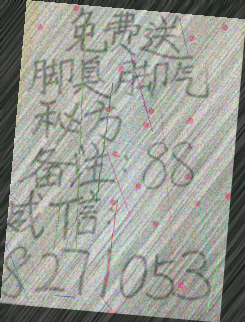 免费送
脚臭脚气
秘方
备注:88
威信:
8271053